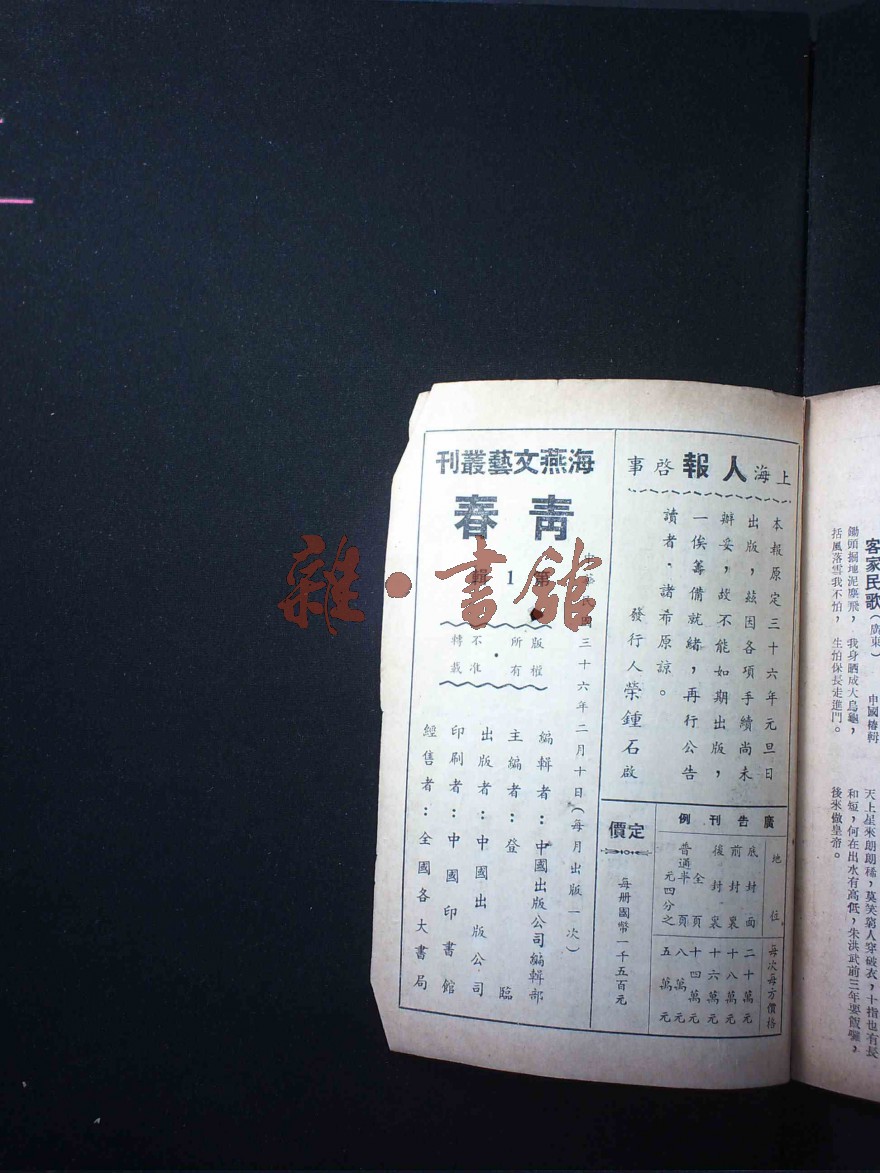 上海人報啓事
本報原定三十六年元旦日
出版，茲因各項手續尚未
辦妥，故不能如期出版，
一俟籌備就緒，再行公告
讀者．諸希原諒。
發行人榮鍾石啟
廣告刊例
地位 每次每方價格
底封面 二十萬元
前封裏 十八萬元
後封裏 十六萬元
普通全頁 十四萬元
普通半頁 八萬元
四分之元 五萬元
定價
每册國幣一千五百元
海燕文藝叢刊
靑春
第1輯
中華民國三十六年二月十日（每月出版一次）
版權所有．不准轉載
編輯者：中國出版公司編輯部
主編者：登臨
出版者：中國出版公司
印刷者：中國印書館
經售者：全國各大書局
客家民歌（廣東） 申國椿輯
鋤頭掘地泥塵飛，我身晒成大烏龜，
括風落雪我不怕，生怕保長走進門。
天上星來朗朗稀，莫笑窮人穿破衣，十指也有長
和短，何在出水有高低，朱洪武前三年要飯囉，
後來做皇帝。
雜·書館